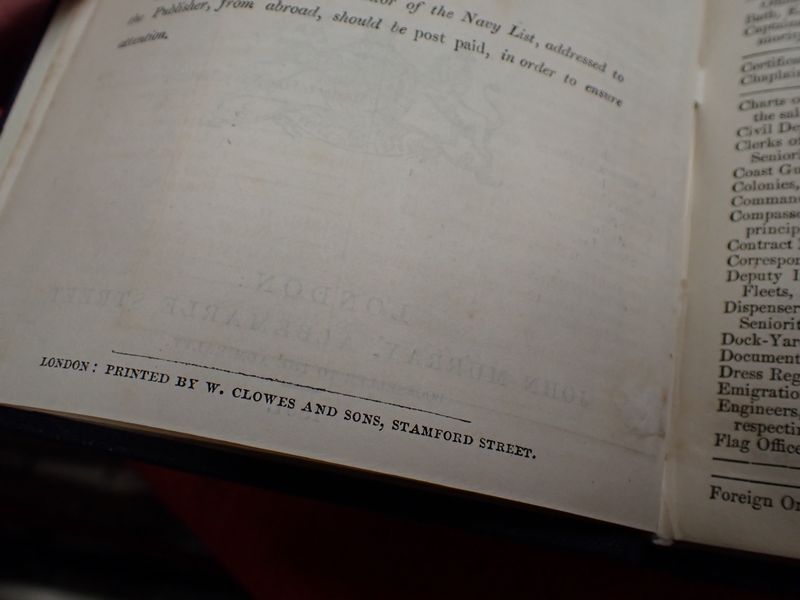 of the Navy List, addressed to
the Publisher, from abroad, should be post paid, in order to ensure
attention.
LONDON:
JOHN MURRAY, ALBEMARLE STREET
LONDON: PRINTED BY W. CLOWES AND SONS, STAMFORD STREET.
Bath,
Certifica
Chaplain
Charts o
the sal
Civil De
Clerks o
Senior
Coast Gu
Colonies,
Comman
Compass
princip
Contract
Correspon
Deputy I
Fleets,
Dispenser
Seniorit
Dock-Yar
Document
Dress Reg
Emigratio
Engineers,
respectin
Flag Office
Foreign Or